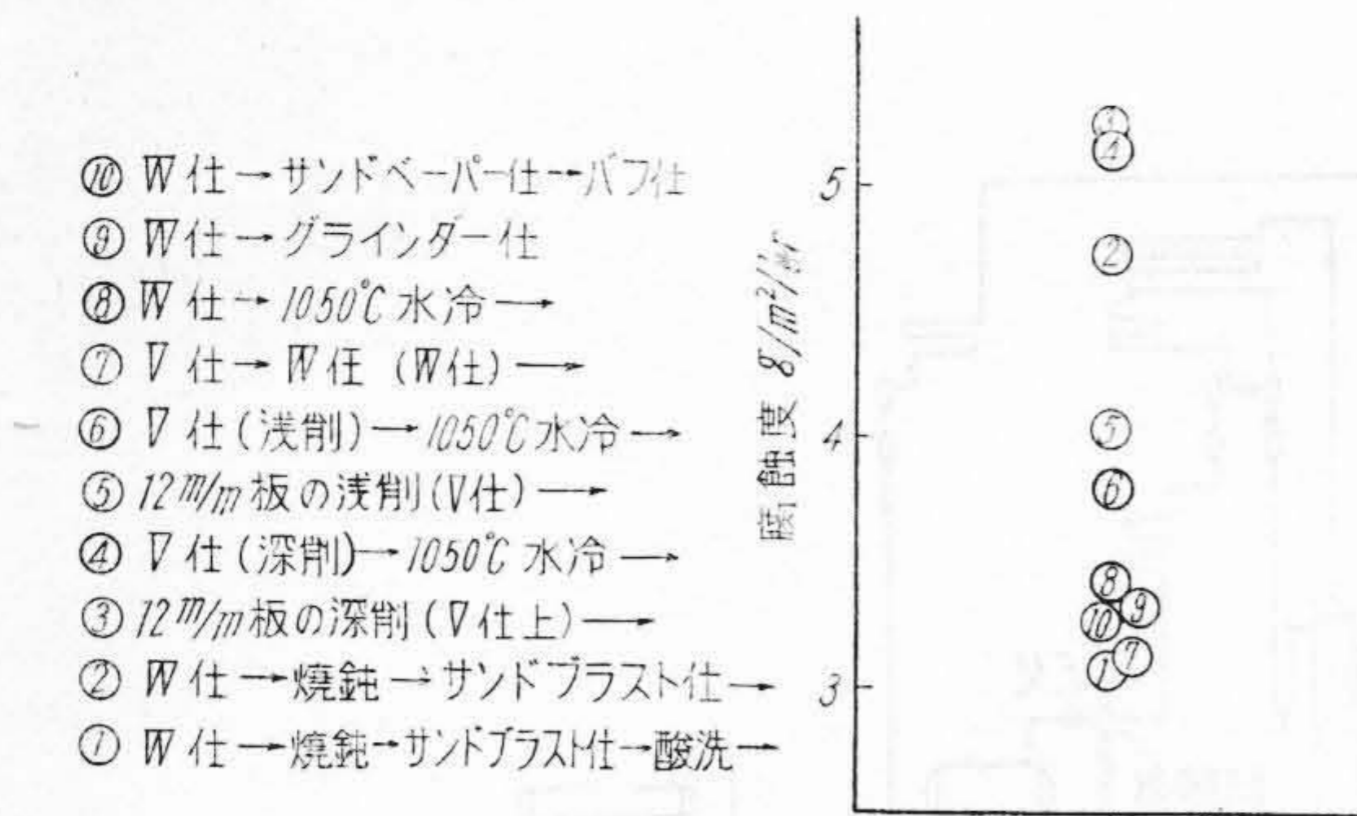 ⑩ ▽▽仕→サンドペーパー仕→バフ仕
⑨ ▽▽仕→グラインダー仕
⑧ ▽▽仕→1050℃水冷→
⑦ ▽仕→▽▽仕 (▽▽仕)→
⑥ ▽仕(浅削)→1050℃水冷→
⑤ 12m/m板の浅削(▽仕)→
④ ▽仕(深削)→1050℃水冷→
③ 12m/m板の深削(▽仕上)→
② ▽▽仕→焼鈍→サンドブラスト仕→
① ▽▽仕→焼鈍→サンドブラスト仕→酸洗→
腐蝕度 g/m²/hr
5
4
3
③
④
②
⑤
⑥
⑧
⑨
⑩
⑦
①